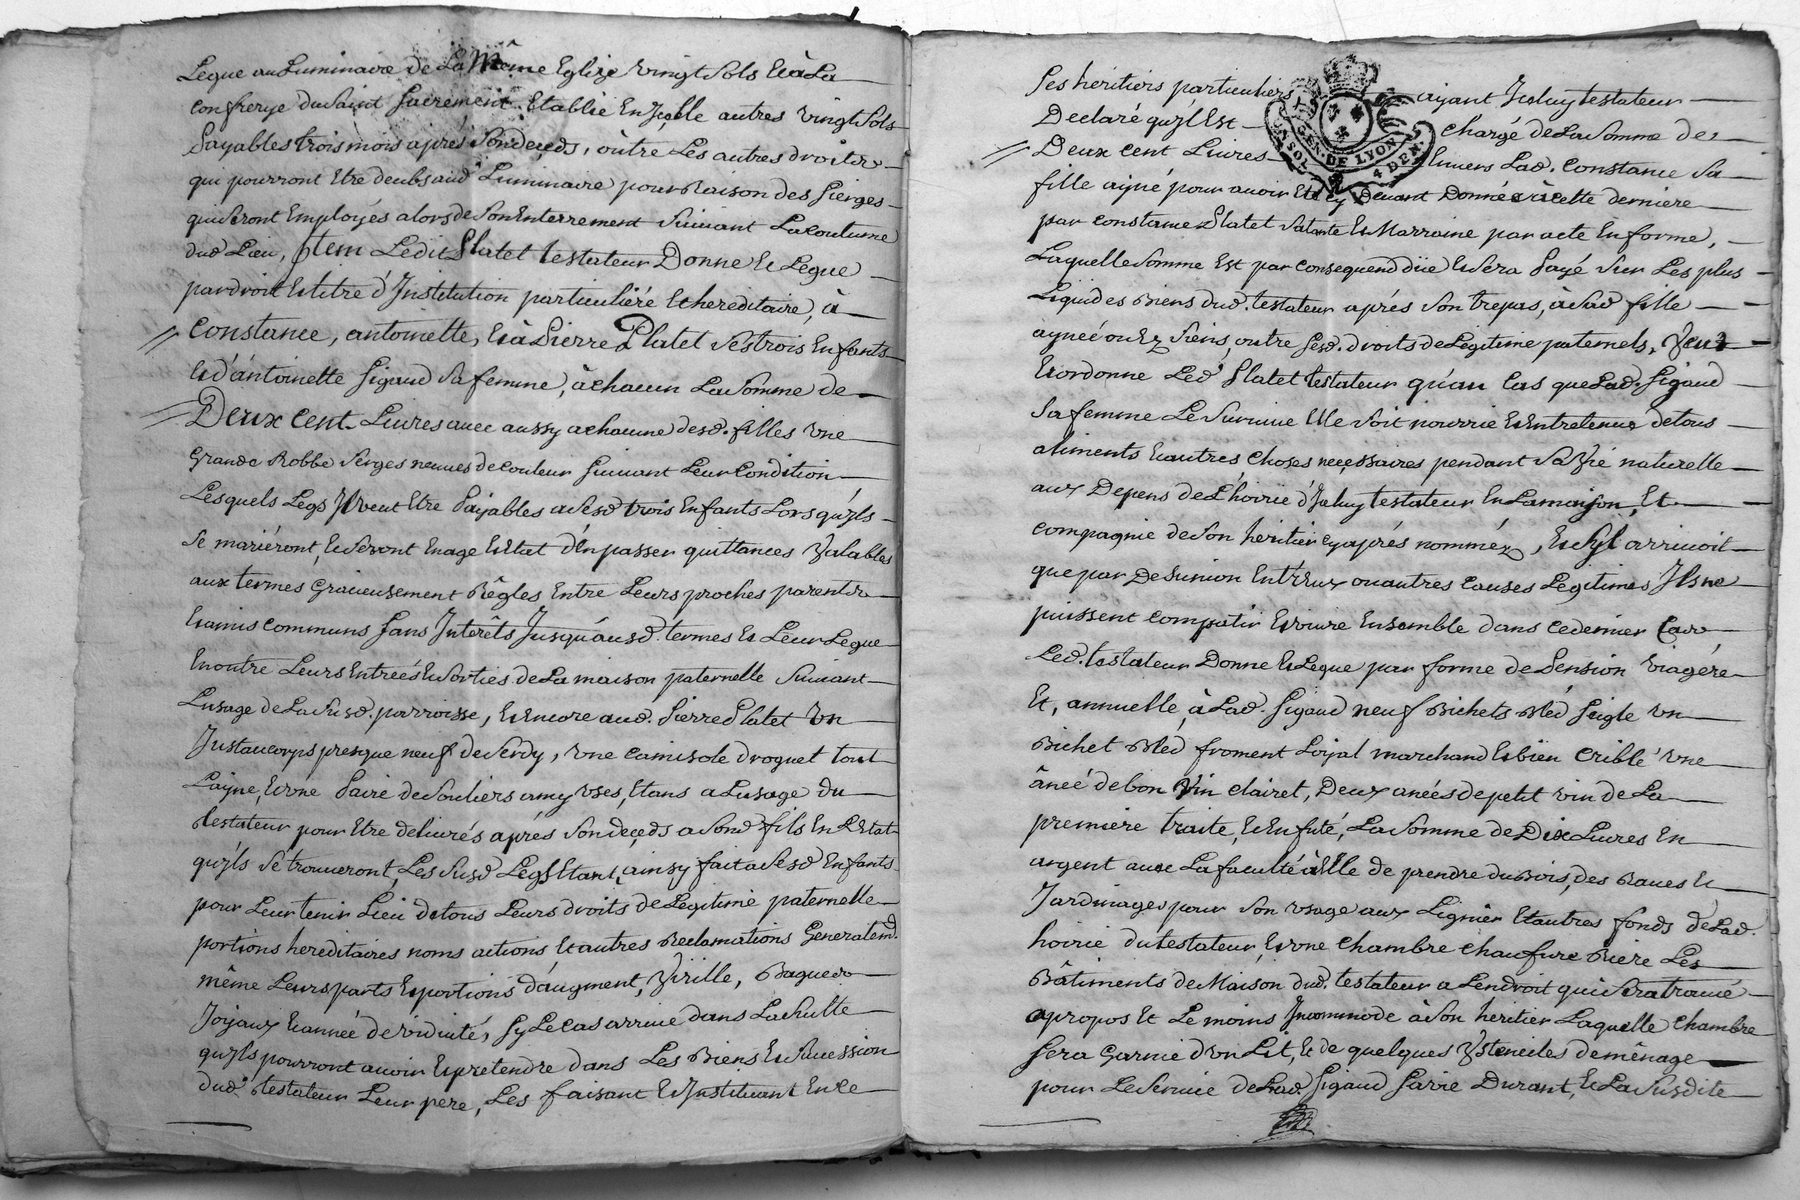 Legue au Luminaire de La Même Eglize vingt Sols Et à La
confrerye du Saint Sacrement Etablie En Jcelle autres vingt Sols
Payables trois mois aprés Son deçeds, oûtre Les autres droits
qui pourront Etre deubs aud Luminaire pour Raison des Sierges
qui Seront Employés alors de Son Enterrement Suivant La coutume
dud Lieu, Jtem Ledit Platet testateur Donne Et Legue
par droit Et titre d'Jnstitution particuliére Et hereditaire, à
Constance, antoinette, Et à Pierre Platet Ses trois Enfants
Et d'antoinette Sigaud Sa femme, à chacun La Somme de
Deux cent Livres avec aussy a chacune desd. filles une
Grande Robbe Serges neuves de couleur Suivant Leur Condition
Lesquels Legs Jl veut Etre Payables a Sesd trois Enfants Lors qu'jls
Se mariéront, Et Seront En age Et Etat d'En passer quittances Valables
aux termes Gracieusement Régles Entre Leurs proches parents
Et amis communs Sans Jnterêts Jusqu'ausd. termes Et Leur Legue
En outre Leurs Entreés Et Sorties de La maison paternelle Suivant
Lusage de La Susd. parroisse, Et Encore aud. Pierre Platet Un
Justaucorps presque neuf de , une camisole droguet tout
Layne, Et une Paire de Souliers amy usés, Etans a Lusage du
testateur pour Etre delivrés aprés Son deçeds a Sond fils En L'Etat
qu'jls Se trouveront, Les Susd Legs Etant ainsy fait a Sesd Enfants
pour Leur tenir Lieu de tous Leurs droits de Legitime paternelle
portions hereditaires noms actions Et autres Reclamations Generalemt.
même Leurs parts Et portions d'augment, Virille, Bagues
Joyaux Et année de viduité, Sy Le cas arrive dans La Suitte
qu'jls pourront avoir Et pretendre dans Les Biens Et Succession
dud. testateur Leur pere, Les faisant Et Jnstituant En Ce
Ses heritiers particuliers ayant Jceluy testateur
Declaré qu'jl Est chargé de La Somme de
Deux cent Livres Envers Lad. Constance Sa
fille ayné pour avoir Eté cy Devant Donnée à cette derniere
par Constance Platet Sa tante Et Marraine par acte En forme,
Laquelle Somme Est par consequend düe Et Sera Payé Sur Les plus
Liquides Biens dud. testateur aprés Son trepas, à Sad fille
aynée ou Ez Siens, outre Sesd. droits de Legitime paternels, Veut
Et ordonne Led. Platet testateur qu'au Cas que Lad. Sigaud
Sa femme Le Survive Elle Soit nourrie Et Entretenue de tous
aliments Et autres choses neçessaires pendant Sa Vie naturelle
aux Depens de L'hoirie d'Jceluy testateur En La maison, Et
compagnie de Son heritier cy aprés nommé, Et S'jl arrivoit
que par Desunion Entr'Eux ou autres causes Legitimes Jls ne
puissent compatir Et vivre Ensemble dans ce dernier Cas
Led. testateur Donne Et Legue par forme de Pension viagére
Et, annuelle, à Lad. Sigaud neuf Bichets Bled Seigle un
Bichet Bled froment Loyal marchand Et bien Criblé une
ânée de bon Vin clairet, Deux anées de petit vin de La
premiere traite, Et En futé, La Somme de Dix Livres En
argent avec La faculté à Elle de prendre du Bois, des Raves Et
Jardinages pour Son usage aux Lignier Et autres fonds de Lad.
hoirie du testateur, Et une chambre chaufure Riere Les
Bâtiments de Maison dud. testateur a Lendroit qui Sera trouvé
apropos Et Le moins Jncommode à Son heritier Laquelle chambre
Sera Garnie d'un Lit, Et de quelques Ystenciles de mênage
pour Le Service de Lad. Sigaud Sa vie Durant, Et La Susdite
GEN. DE LYON
SOL 4 DEN.